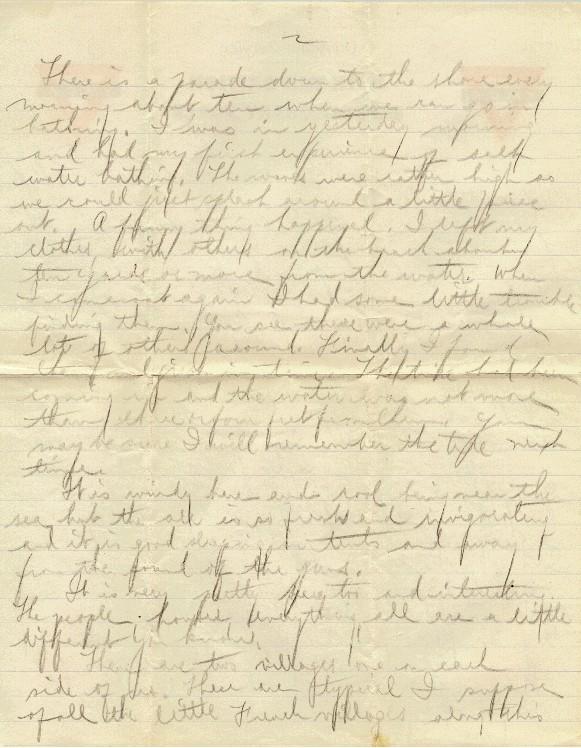 2
There is a parade down to the shore every
morning about ten when we can go in
bathing. I was in yesterday morning
and had my first experience of salt
water bathing. The waves were rather high so
we could just splash around a little piece
out. A funny thing happened. I left my
clothes with others on the beach about
ten yards or more from the water. When
I came out again I had some little trouble
finding them. You see there were a whole
lot of others around. Finally I found
The tide had been
coming up and the water was not more
than three or four feet from them. You
may be sure I will remember the tide next
time.
It is windy here and cool being near the
sea but the air is so fresh and invigorating
and it is good sleeping in tents and away
from the sound of the guns.
It is very pretty here too and interesting.
The people, houses, everything all are a little
different you know.
There are two villages one on each
side of us. These are typical I suppose
of all the little French villages along this